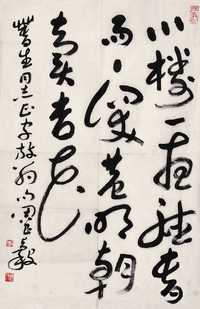 小樓一夜聽春
雨深巷明朝
賣杏花
生同志正字放翁句